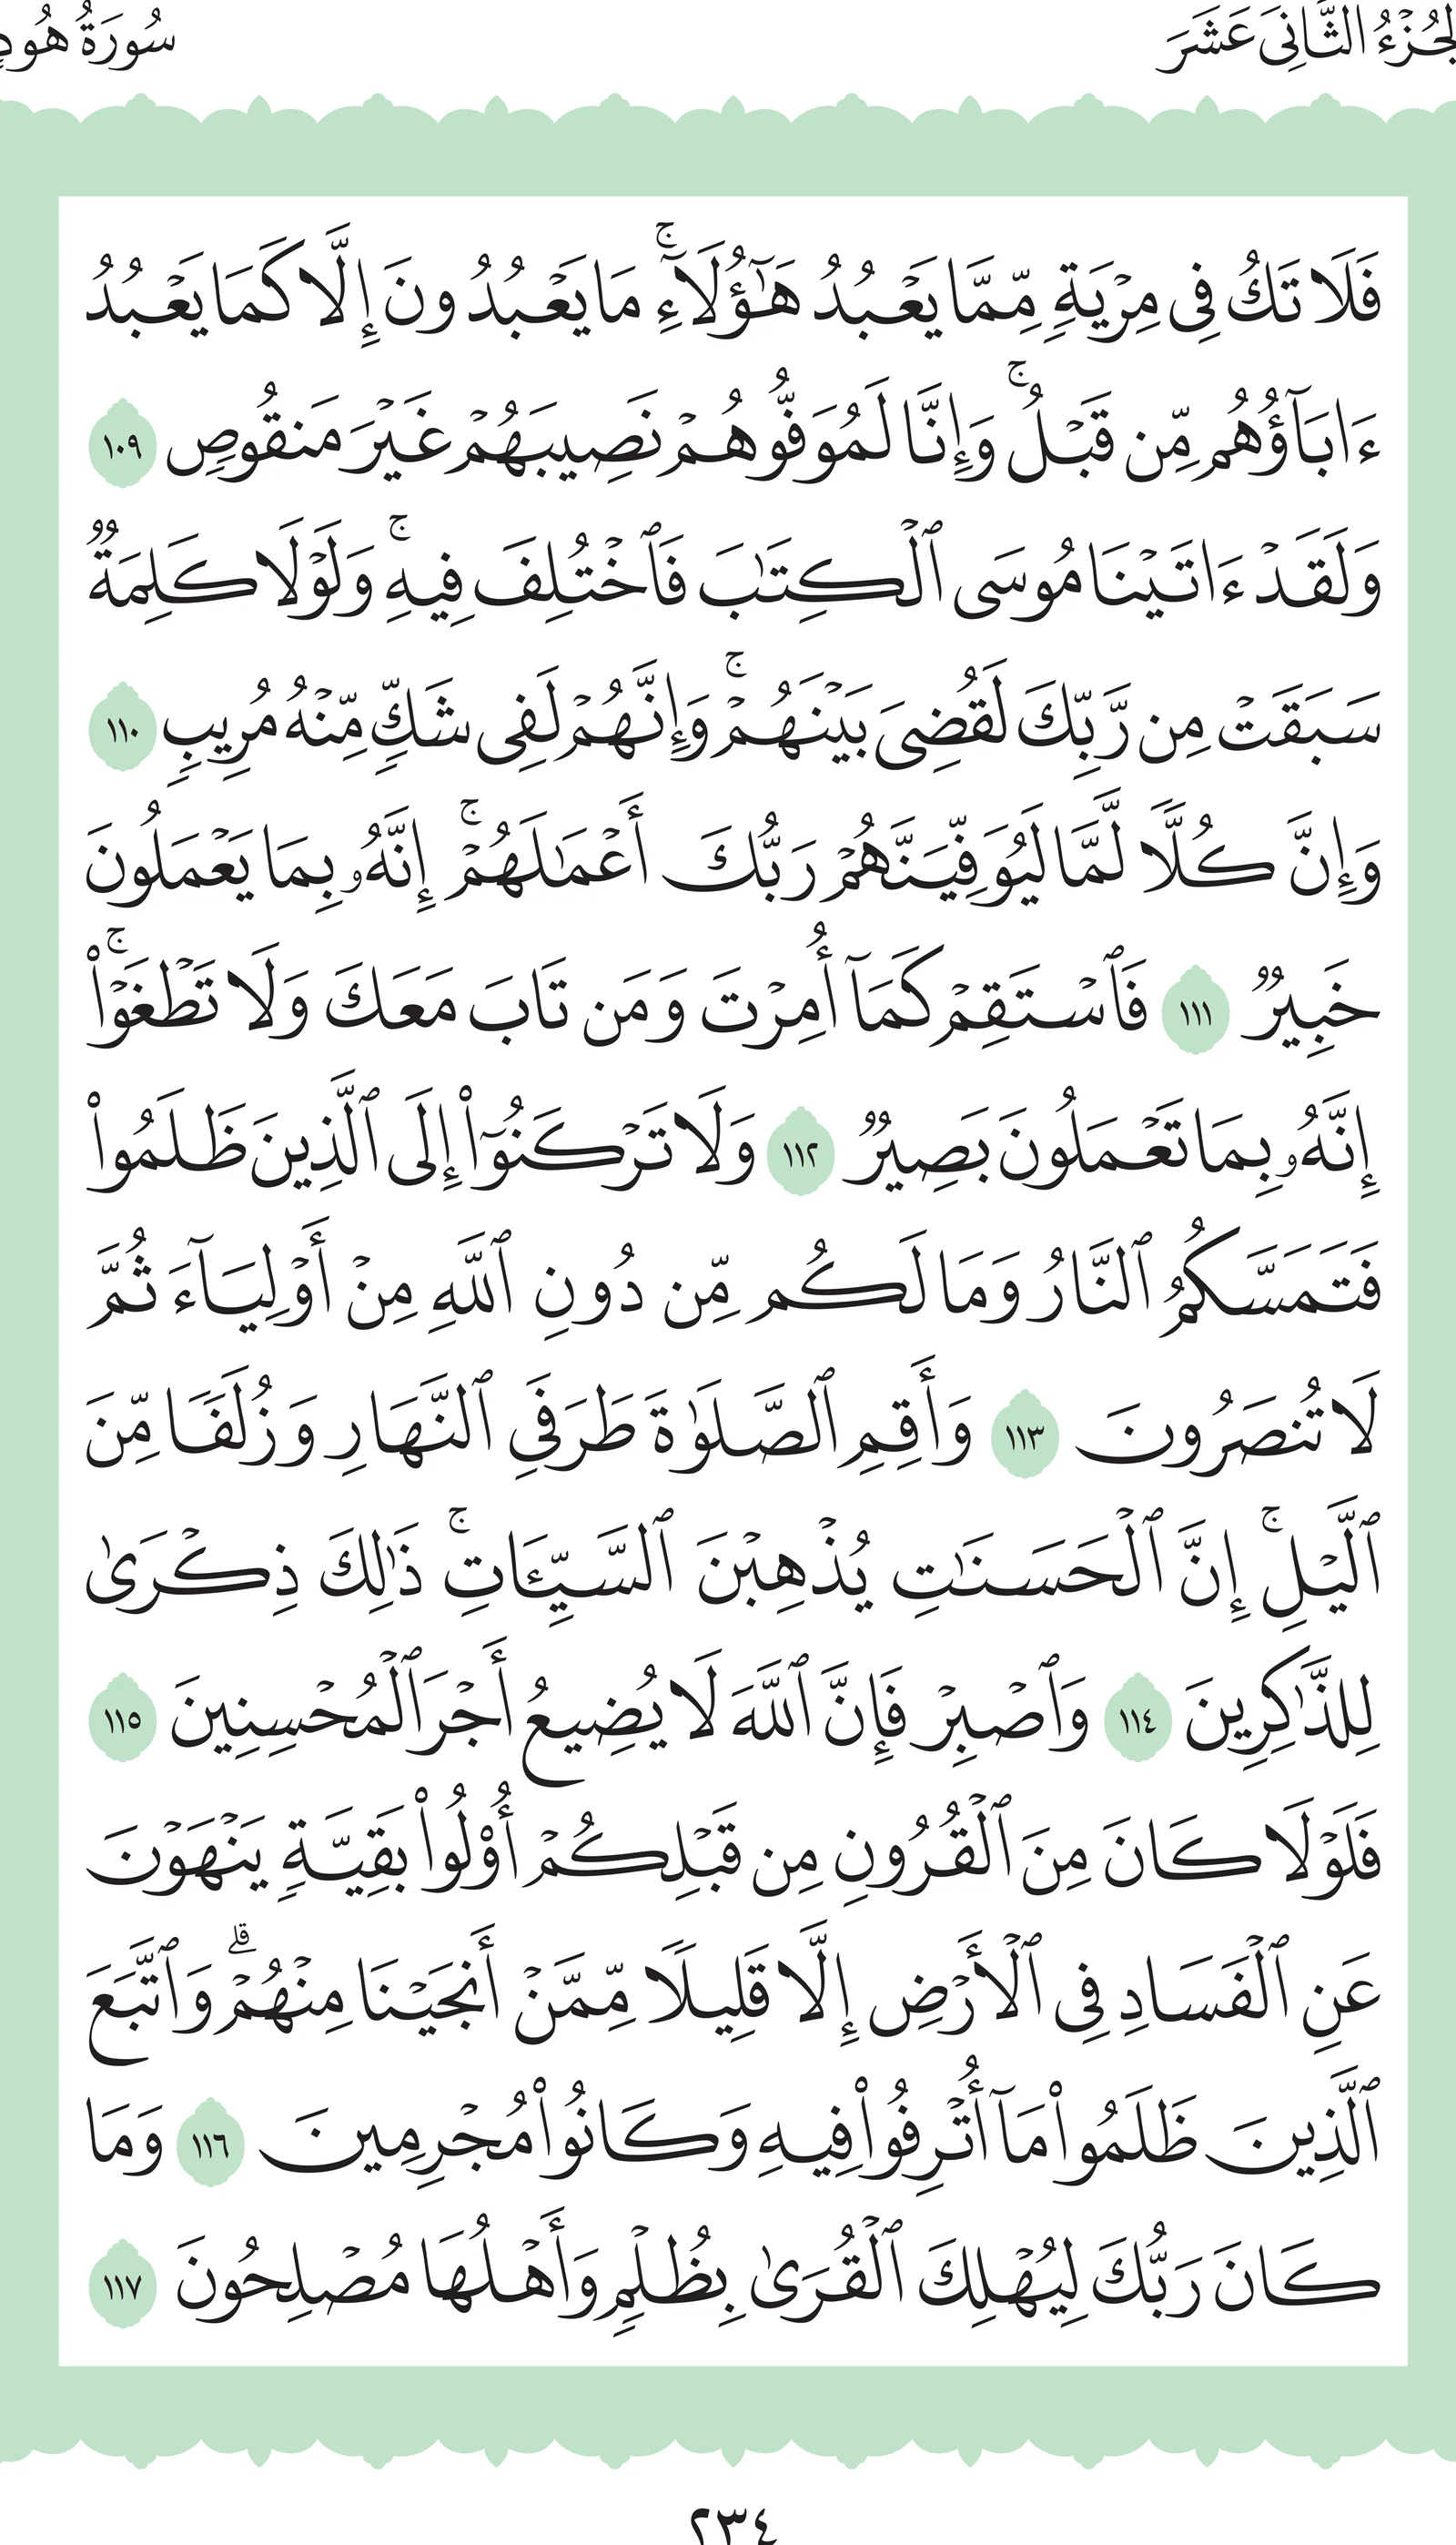 الجُزْءُ الثَّانِيَ عَشَرَ
سُورَةُ هُودٍ
فَلَا تَكُ فِى مِرْيَةٍ مِّمَّا يَعْبُدُ هَٰٓؤُلَآءِ ۚ مَا يَعْبُدُونَ إِلَّا كَمَا يَعْبُدُ
ءَابَآؤُهُم مِّن قَبْلُ ۚ وَإِنَّا لَمُوَفُّوهُمْ نَصِيبَهُمْ غَيْرَ مَنقُوصٍ ١٠٩
وَلَقَدْ ءَاتَيْنَا مُوسَى ٱلْكِتَٰبَ فَٱخْتُلِفَ فِيهِ ۚ وَلَوْلَا كَلِمَةٌ
سَبَقَتْ مِن رَّبِّكَ لَقُضِىَ بَيْنَهُمْ ۚ وَإِنَّهُمْ لَفِى شَكٍّ مِّنْهُ مُرِيبٍ ١١٠
وَإِنَّ كُلًّا لَّمَّا لَيُوَفِّيَنَّهُمْ رَبُّكَ أَعْمَٰلَهُمْ ۚ إِنَّهُۥ بِمَا يَعْمَلُونَ
خَبِيرٌ ١١١ فَٱسْتَقِمْ كَمَآ أُمِرْتَ وَمَن تَابَ مَعَكَ وَلَا تَطْغَوْا۟ ۚ
إِنَّهُۥ بِمَا تَعْمَلُونَ بَصِيرٌ ١١٢ وَلَا تَرْكَنُوٓا۟ إِلَى ٱلَّذِينَ ظَلَمُوا۟
فَتَمَسَّكُمُ ٱلنَّارُ وَمَا لَكُم مِّن دُونِ ٱللَّهِ مِنْ أَوْلِيَآءَ ثُمَّ
لَا تُنصَرُونَ ١١٣ وَأَقِمِ ٱلصَّلَوٰةَ طَرَفَىِ ٱلنَّهَارِ وَزُلَفًا مِّنَ
ٱلَّيْلِ ۚ إِنَّ ٱلْحَسَنَٰتِ يُذْهِبْنَ ٱلسَّيِّـَٔاتِ ۚ ذَٰلِكَ ذِكْرَىٰ
لِلذَّٰكِرِينَ ١١٤ وَٱصْبِرْ فَإِنَّ ٱللَّهَ لَا يُضِيعُ أَجْرَ ٱلْمُحْسِنِينَ ١١٥
فَلَوْلَا كَانَ مِنَ ٱلْقُرُونِ مِن قَبْلِكُمْ أُو۟لُوا۟ بَقِيَّةٍ يَنْهَوْنَ
عَنِ ٱلْفَسَادِ فِى ٱلْأَرْضِ إِلَّا قَلِيلًا مِّمَّنْ أَنجَيْنَا مِنْهُمْ ۗ وَٱتَّبَعَ
ٱلَّذِينَ ظَلَمُوا۟ مَآ أُتْرِفُوا۟ فِيهِ وَكَانُوا۟ مُجْرِمِينَ ١١٦ وَمَا
كَانَ رَبُّكَ لِيُهْلِكَ ٱلْقُرَىٰ بِظُلْمٍ وَأَهْلُهَا مُصْلِحُونَ ١١٧
٢٣٤